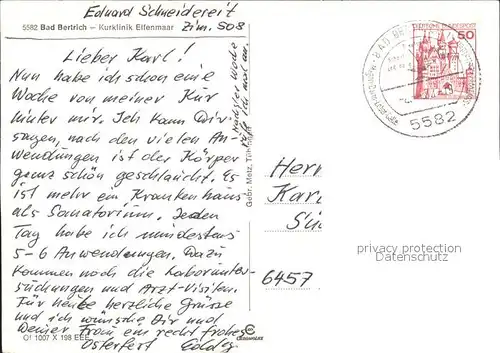 Eduard Schneidereit
Zim. 508
5582 Bad Bertrich – Kurklinik Elfenmaar
Lieber Karl!
Nun habe ich schon eine
Woche von meiner Kur
hinter mir. Ich kann Dir
sagen, nach den vielen An-
wendungen ist der Körper
ganz schön geschlaucht. Es
ist mehr ein Krankenhaus
als Sanatorium. Jeden
Tag habe ich mindestens
5-6 Anwendungen. Dazu
kommen noch die Laborunter-
suchungen und Arzt-Visiten.
Für heute herzliche Grüsse
und ich wünsche Dir und
Deiner Frau ein recht frohes
Osterfest
Nächster Woche
rufe ich mal an.
Gebr. Metz, Tübingen
Of 1007 X 198 EEE
50
BAD
5582
Herr
Kar
6457
privacy protection
Datenschutz